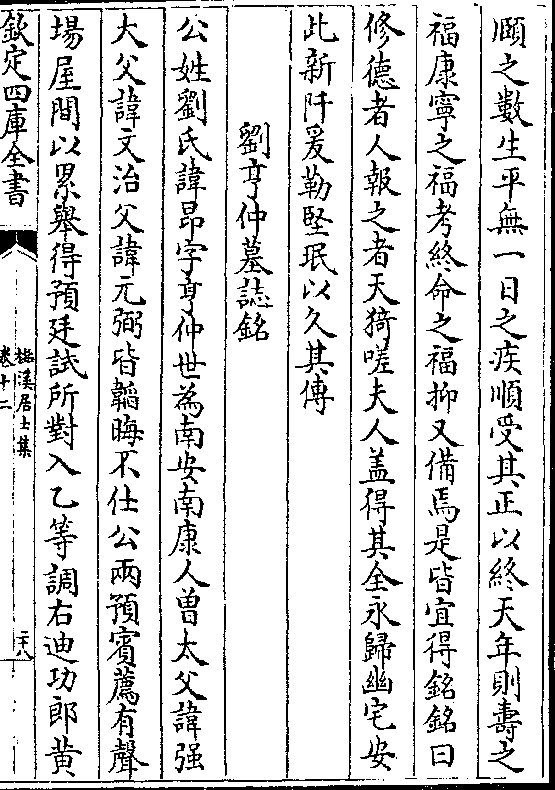 頤之數生平無一日之疾順受其正以終天年則壽之
福康寧之福考終命之福抑又備焉是皆宜得銘銘曰
修德者人報之者天猗嗟夫人盖得其全永歸幽宅安
此新阡爰勒堅珉以久其傳
劉亨仲墓誌銘
公姓劉氏諱昂字亨仲世為南安南康人曾太父諱强
大父諱文治父諱元弼皆韜晦不仕公兩預賓薦有聲
場屋間以累舉得預廷試所對入乙等調右迪功郎黄
欽定四庫全書
檆溪居士集
卷十二
二十八